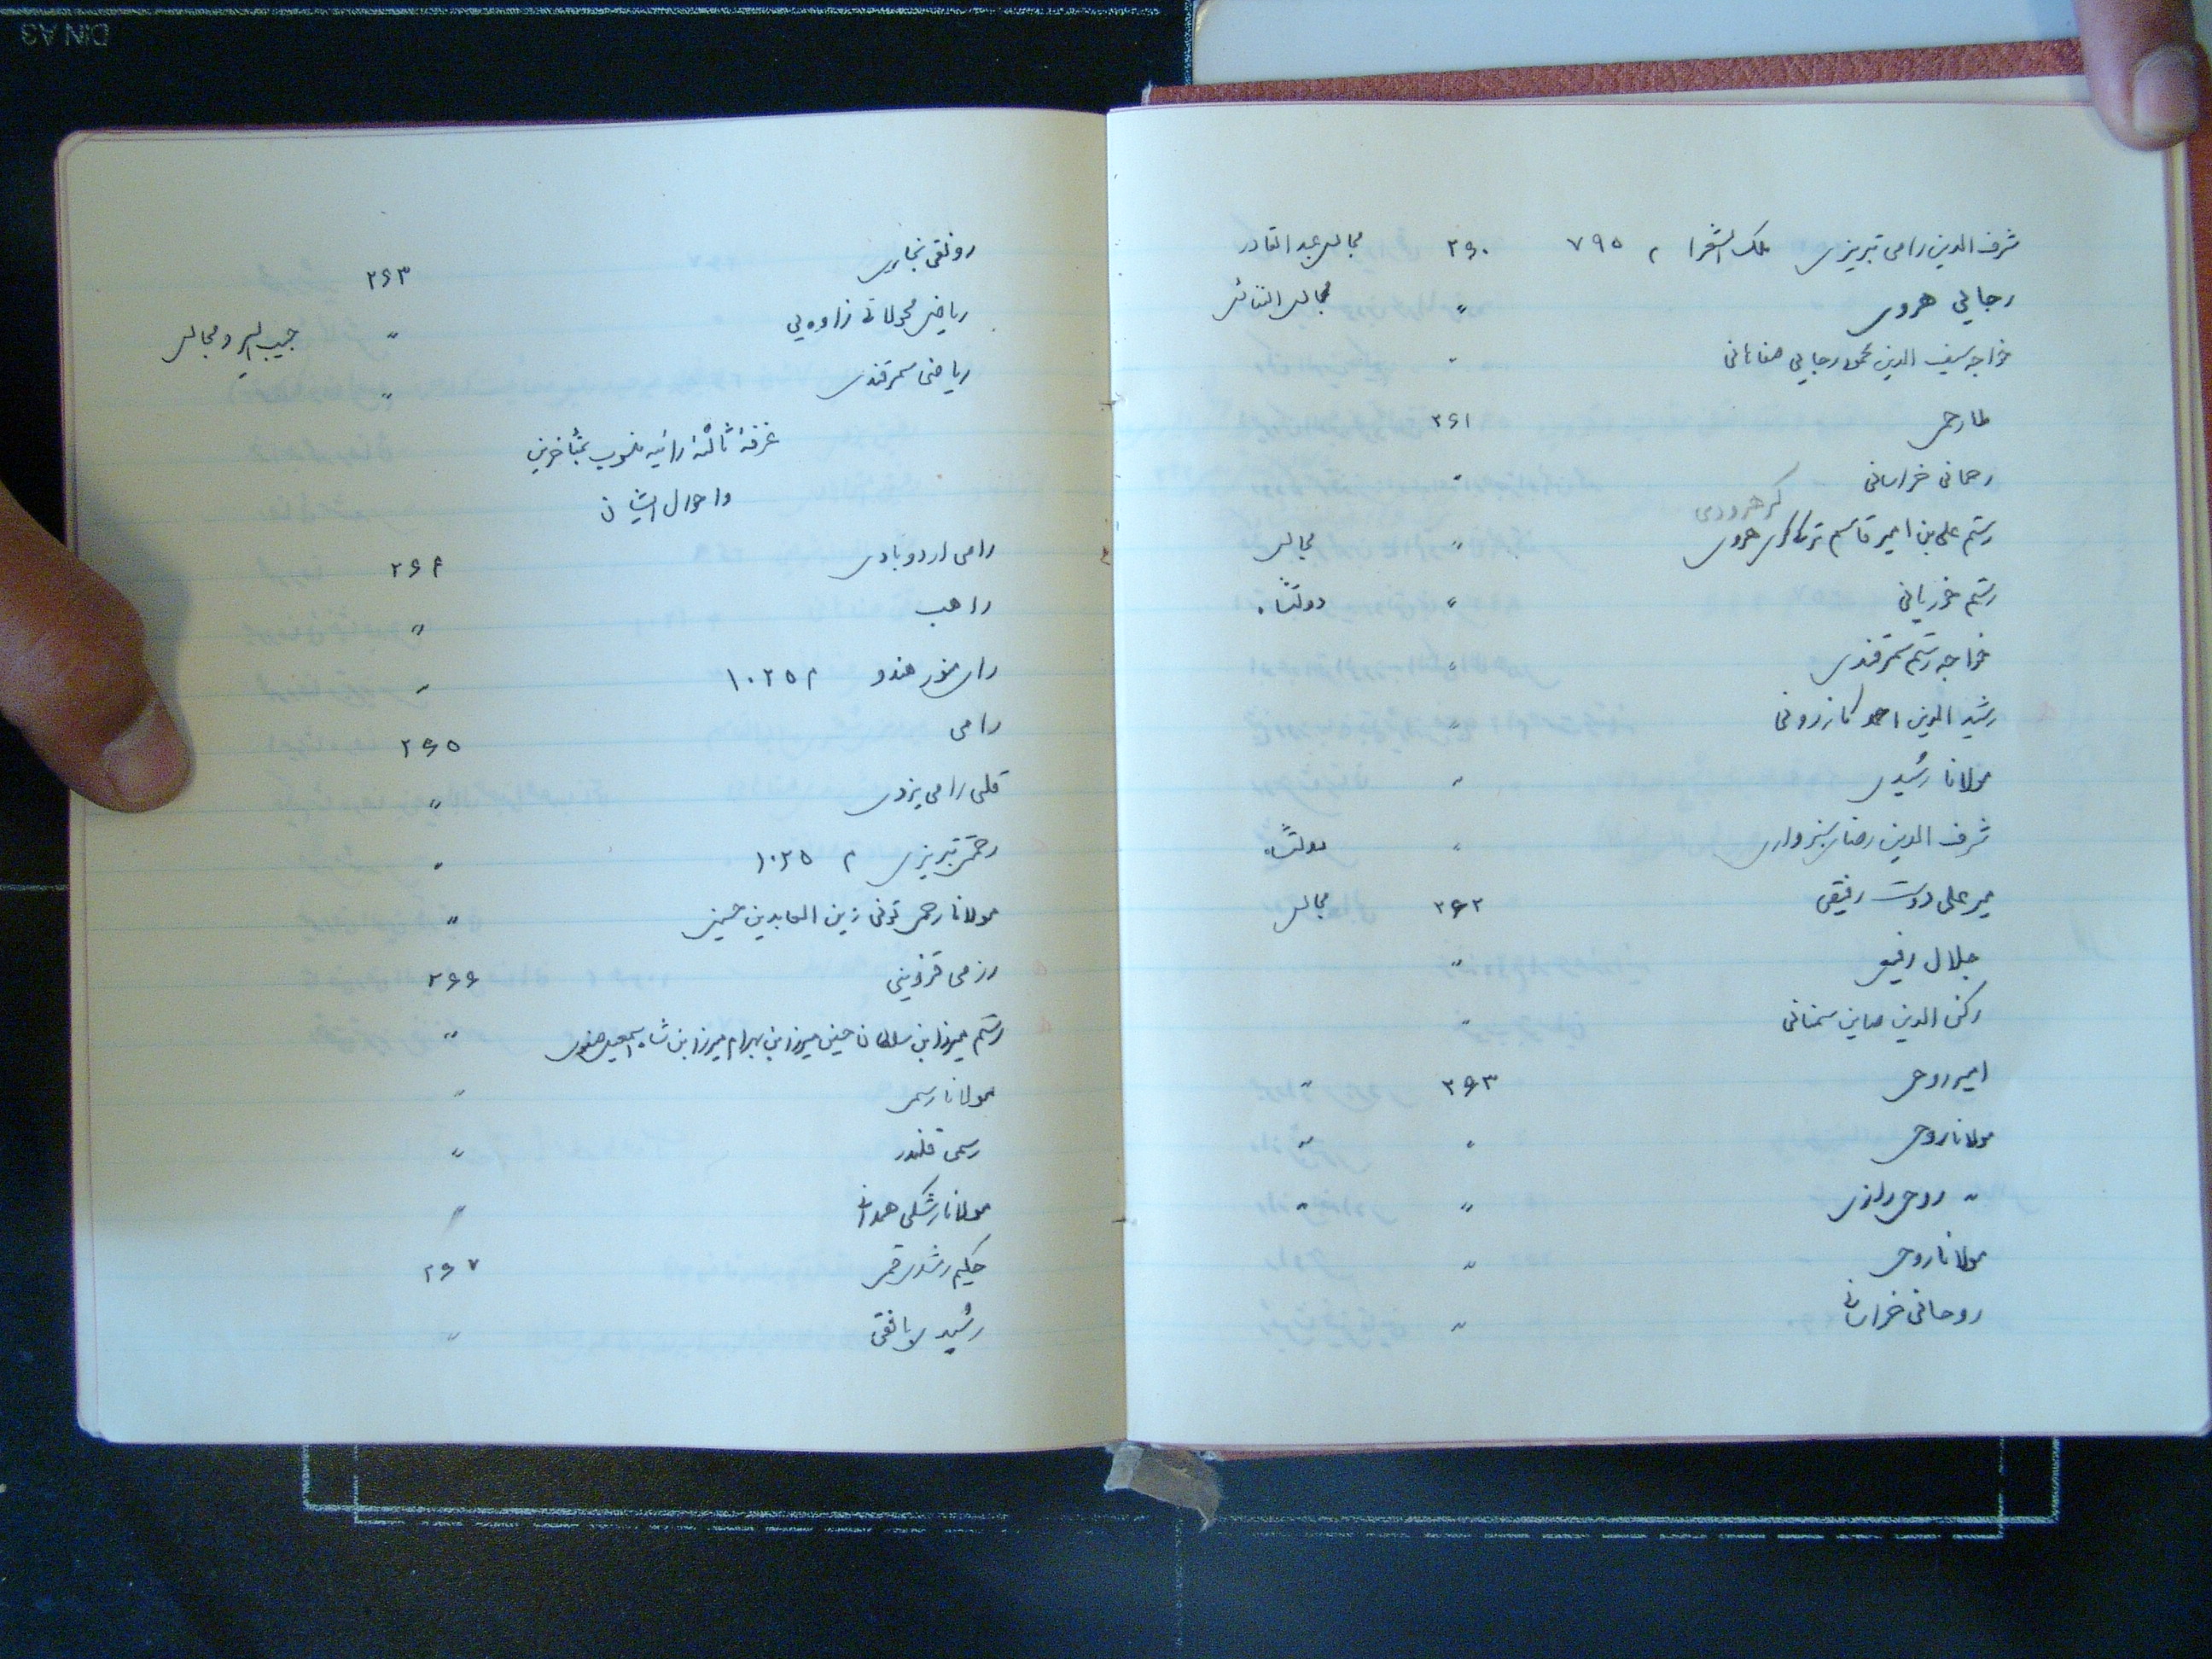 شرف الدین رامی تبریزی ملک الشعرا م ٧٩٥ ٢۶٠ مجالس عبد القادر
رجایی هروی " مجالس النفائس
خواجه سیف الدین محمود رجایی صفاهانی "
ملا رحمی ٢۶١
رحمانی خراسانی "
کرهرودی
رستم علی بن امیر قاسم هروی " مجالس
رستم خوریانی " دولتشاه
خواجه رستم سمرقندی "
رشید الدین احمد کازرونی "
مولانا رشیدی "
شرف الدین رضای سبزواری " دولتشاه
میر علی دوست رفیقی ٢۶٢ مجالس
جلال رفیعی "
رکن الدین صاین سمنانی "
امیر روحی ٢۶٣ "
مولانا روحی " "
" روحی رازی " "
مولانا روحی "
روحانی خراسانی "
رونقی بخاری ٢۶٣
ریاضی محولاتی زاوه یی " حبیب السیر و مجالس
ریاضی سمرقندی "
غرفهٔ ثالثه رائیه منسوب بمتأخرین
و احوال ایشان
رامی اردوبادی ٢۶۴
راهب "
رای منوهر هندو م ١٠٢٥ "
رامی ٢۶٥
قلی رامی یزدی "
رحمتی تبریزی م ١٠٢٥ "
مولانا رحمی تونی زین العابدین حسینی "
رزمی قزوینی ٢۶۶
رستم میرزا بن سلطان حسین میرزا بن بهرام میرزا بن شاه اسمعیل صفوی "
مولانا رسمی "
رسمی قلندر "
مولانا رشکی همدانی "
حکیم رشدی قمی ٢۶٧
رشید "